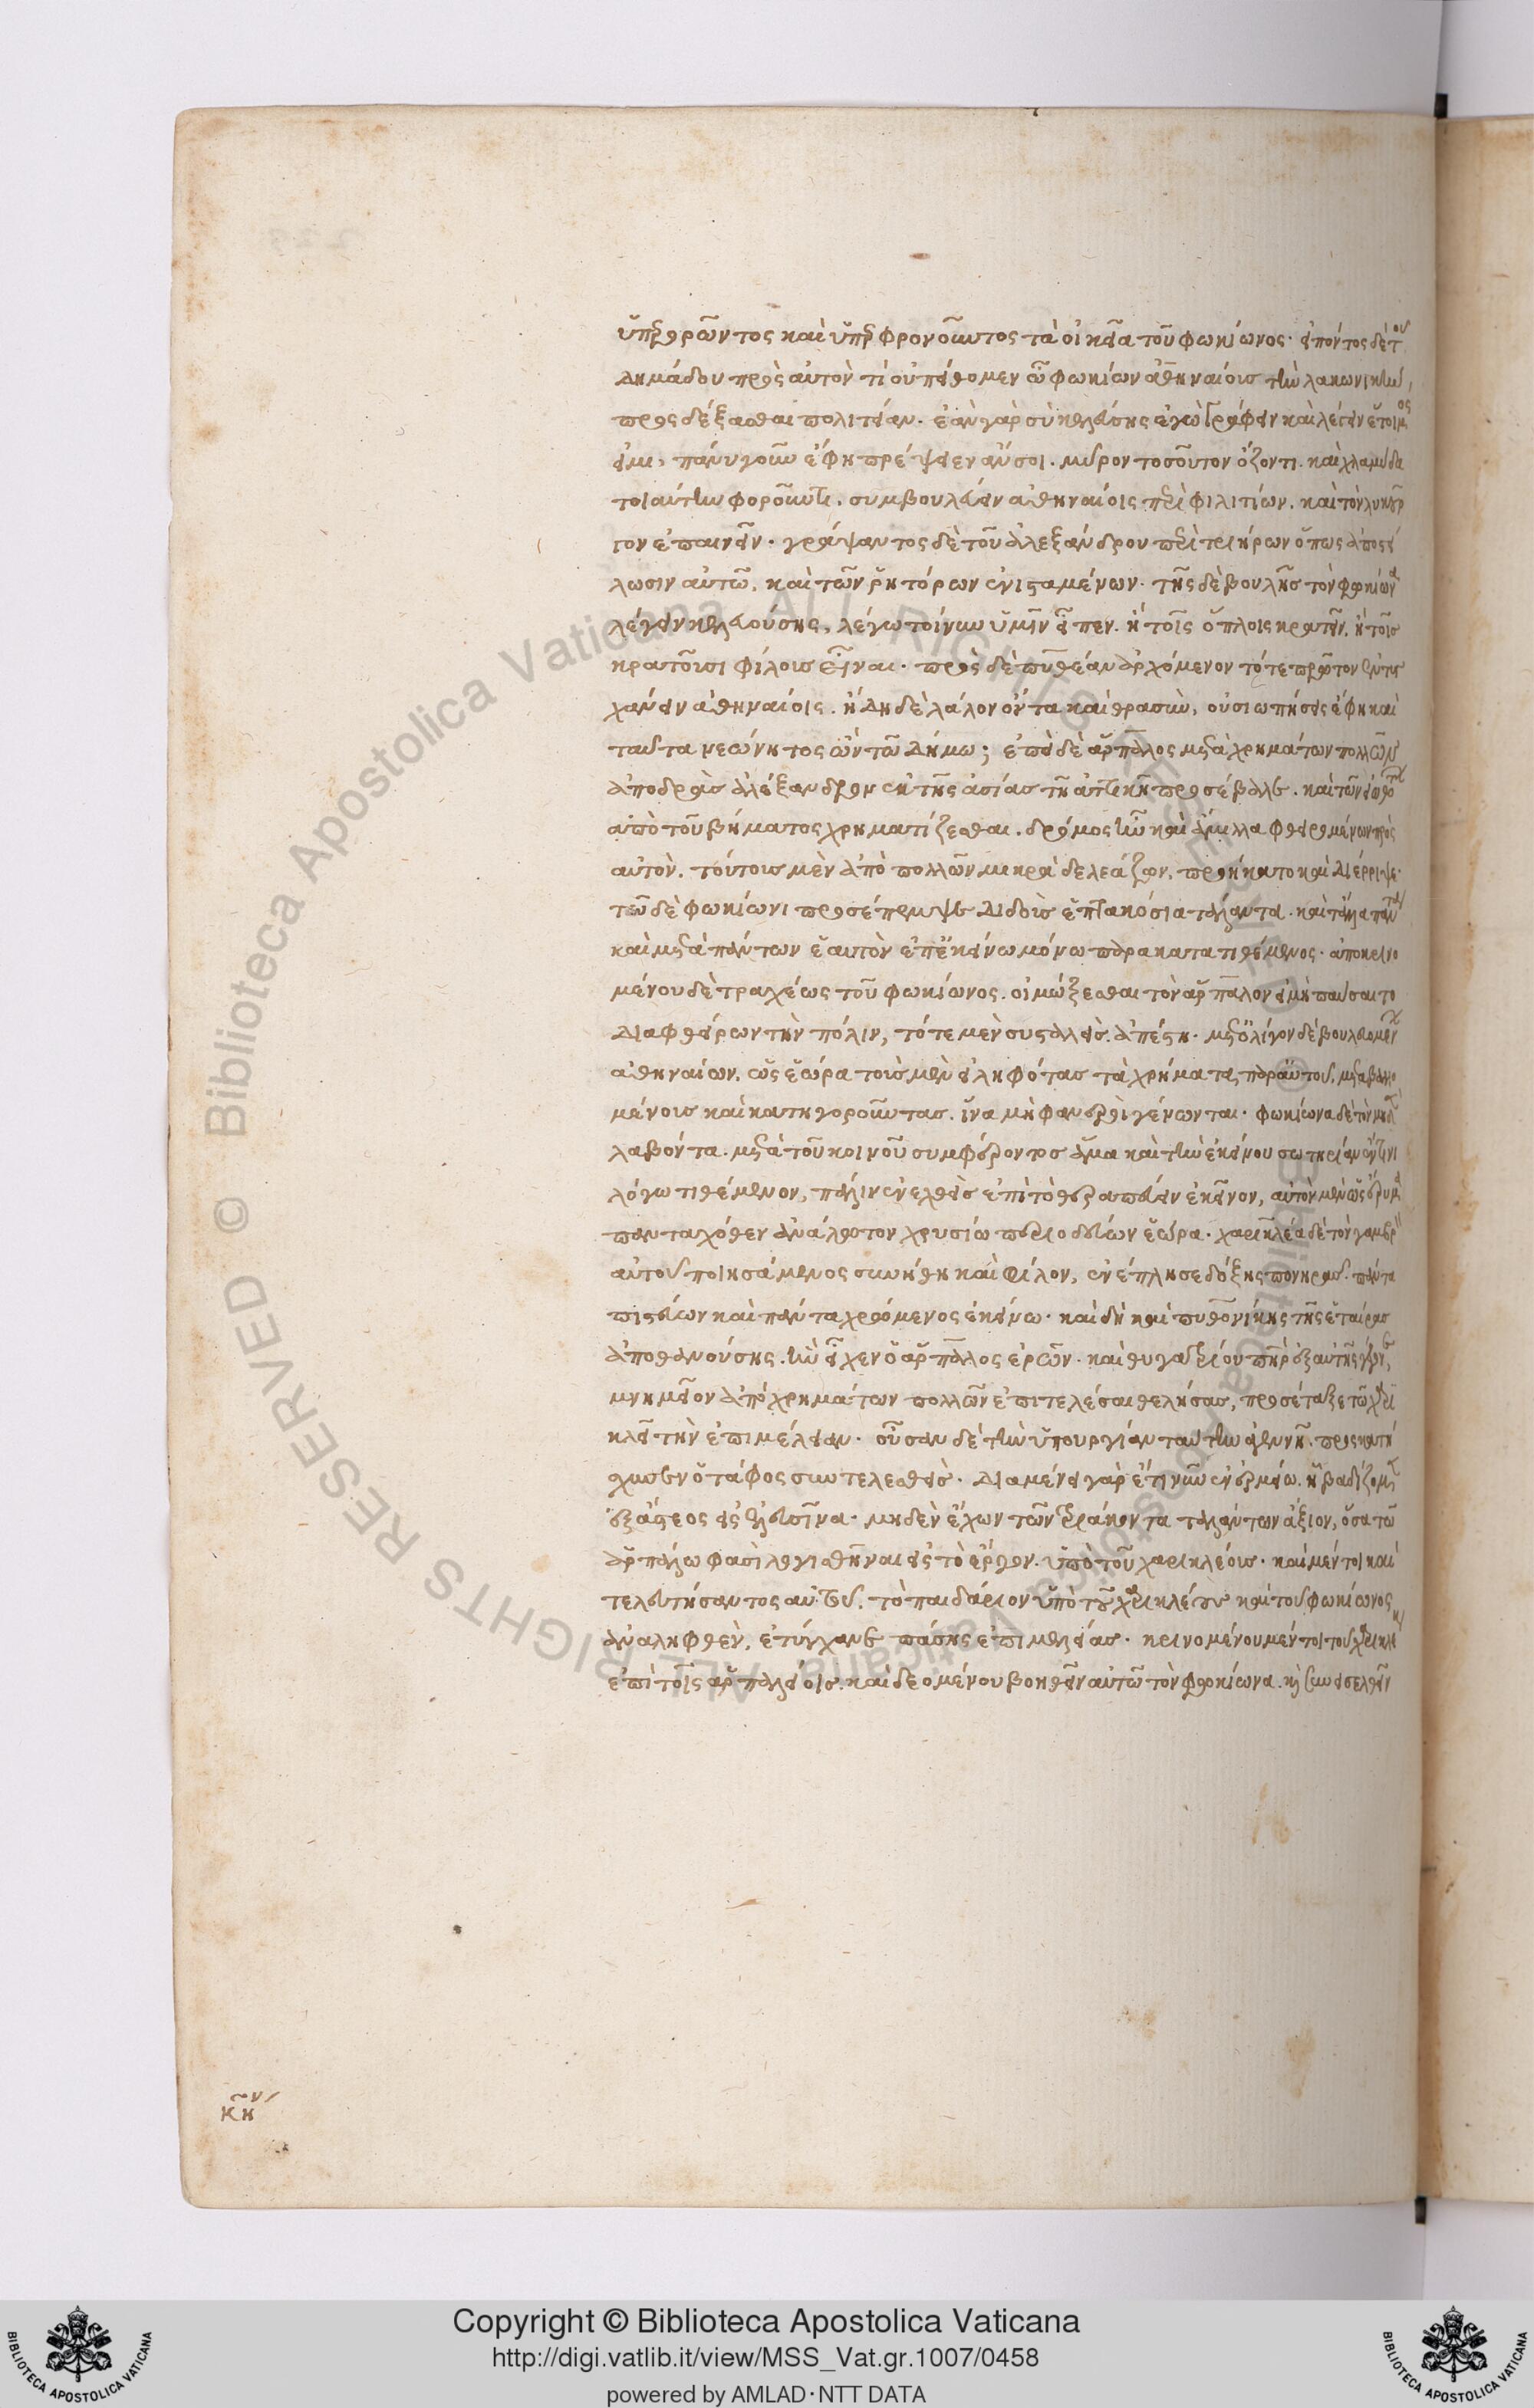 ὑπερορῶντος καὶ ὑπερφρονοῦντος τὰ οἰκεῖα τοῦ φωκίωνος· εἰπόντος δὲ τοῦ
Δημάδου πρὸς αὐτὸν τί οὐ πείθομεν ὦ φωκίων ἀθηναίοις τὴν λακωνικὴν,
προσδέξασθαι πολιτείαν· ἐὰν γὰρ σὺ κελεύσης ἐγὼ γράφειν καὶ λέγειν ἕτοιμος
εἰμι, πάνυ γοῦν ἔφη πρέψειεν ἄν σοι. μύρον τοσοῦτον ὄζοντι. καὶ χλαμύδα
τοιαύτην φοροῦντι. συμβουλεύειν ἀθηναίοις περὶ φιλιτίων. καὶ τὸν λυκοῦρ
γον ἐπαινεῖν· γράψαντος δὲ τοῦ ἀλεξάνδρου περὶ τριήρων ὅπως ἀποστεί
λωσιν αὐτῶ, καὶ τῶν ῥητόρων ἐνισταμένων· τῆς δὲ βουλῆς τὸν φωκίωνα
λέγειν κελευούσης, λέγω τοίνυν ὑμῖν εἶπεν. ἢ τοῖς ὅπλοις κρατεῖν. ἢ τοῖς
κρατοῦσι φίλους εἶναι· πρὸς δὲ πυθέαν ἀρχόμενον τότε πρῶτον ἐντυγ
χάνειν ἀθηναίοις. ἤδη δὲ λάλον ὄντα καὶ θρασὺν, οὐ σιωπήσεις ἔφη καὶ
ταῦτα νεώνητος ὢν τῶ δήμω; ἐπεὶ δὲ ἅρπαλος μετὰ χρημάτων πολλῶν
ἀποδρὰς ἀλέξανδρον ἐκ τῆς ἀσίας τῆ ἀττικῆ προσέβαλε. καὶ τῶν εἰωθότων
ἀπὸ τοῦ βήματος χρηματίζεσθαι. δρόμος ἦν καὶ ἅμιλλα φθειρομένων πρὸς
αὐτὸν. τούτοις μὲν ἀπὸ πολλῶν μικρὰ δελεάζων. προήκατο καὶ διέρριψε·
τῶ δὲ φωκίωνι προσέπεμψε διδοὺς ἑπτακόσια τάλαντα. καὶ τἄλλα πάντα
καὶ μετὰ πάντων ἑαυτὸν ἐπ' ἐκείνω μόνω παρακατατιθέμενος· ἀποκρινο
μένου δὲ τραχέως τοῦ φωκίωνος. οἰμώξεσθαι τὸν ἅρπαλον εἰ μὴ παύσαιτο
διαφθείρων τὴν πόλιν, τότε μὲν συσταλεὶς ἀπέστη· μετ' ὀλίγον δὲ βουλευομένων
ἀθηναίων. ὡς ἑώρα τοὺς μὲν εἰληφότας τὰ χρήματα παρ' αὐτοῦ, μεταβαλλο
μένους καὶ κατηγοροῦντας. ἵνα μὴ φανεροὶ γένωνται· φωκίωνα δὲ τὸν μηδὲν
λαβόντα. μετὰ τοῦ κοινοῦ συμφέροντος ἅμα καὶ τὴν ἐκείνου σωτηρίαν ἔν τινι
λόγω τιθέμενον, πάλιν ἐνελθὼς ἐπὶ τὸ θεραπεύειν ἐκεῖνον, αὐτὸν μὲν ὡς ἔρυμα
πανταχόθεν ἀνάλωτον χρυσίω περιοδεύων ἑώρα· χαρικλέα δὲ τὸν γαμβρὸν
αὐτοῦ ποιησάμενος συνήθη καὶ φίλον, ἐνέπλησε δόξης πονηρᾶς. πάντα
πιστεύων καὶ πάντα χρώμενος ἐκείνω· καὶ δὴ καὶ πυθονίκης τῆς ἑταίρας
ἀποθανούσης. ἣν εἶχεν ὁ ἅρπαλος ἐρῶν· καὶ θυγατρίου πατὴρ ἐξ αὐτῆς ἐγεγόνει,
μνημεῖον ἀπὸ χρημάτων πολλῶν ἐπιτελέσαι θελήσας, προσέταξε τῶ χαρι
κλεῖ τὴν ἐπιμέλειαν· οὖσαν δὲ τὴν ὑπουργίαν ταύτην ἀγεννῆ. προσκατή
σχυνεν ὁ τάφος συντελεσθεὶς· διαμένει γὰρ ἔτι νῦν ἐν ἑρμείω. ἧ βαδίζομεν
ἐξ ἄστεος εἰς ἐλευσῖνα· μηδὲν ἔχων τῶν τριάκοντα ταλάντων ἄξιον, ὅσα τῶ
ἁρπάλω φασὶ λογισθῆναι εἰς τὸ ἔργον. ὑπὸ τοῦ χαρικλέους· καὶ μέν τοι καὶ
τελευτήσαντος αὐτοῦ. τὸ παιδάριον ὑπὸ τοῦ χαρικλέους καὶ τοῦ φωκίωνος
ἀναληφθὲν, ἐτύγχανε πάσης ἐπιμελείας· κρινομένου μέν τοι τοῦ χαρικλέους
ἐπὶ τοῖς ἁρπαλείοις. καὶ δεομένου βοηθεῖν αὐτῶ τὸν φωκίωνα. καὶ συνεισελθεῖν
Copyright © Biblioteca Apostolica Vaticana
http://digi.vatlib.it/view/MSS_Vat.gr.1007/0458
powered by AMLAD·NTT DATA